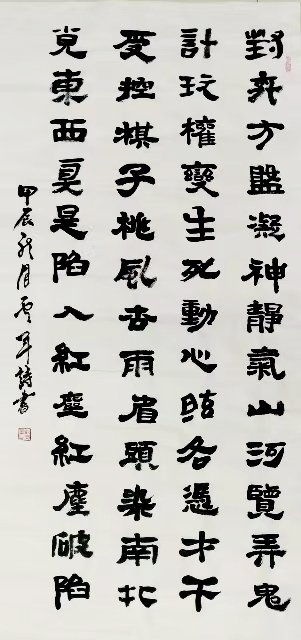 對弈方盤凝神靜氣山河覽弄鬼
計玩權變生死動心眩各憑才干
受控棋子桃風杏雨眉頭染南北
覓東西莫是陷入紅塵紅塵破陷
甲辰月詩書